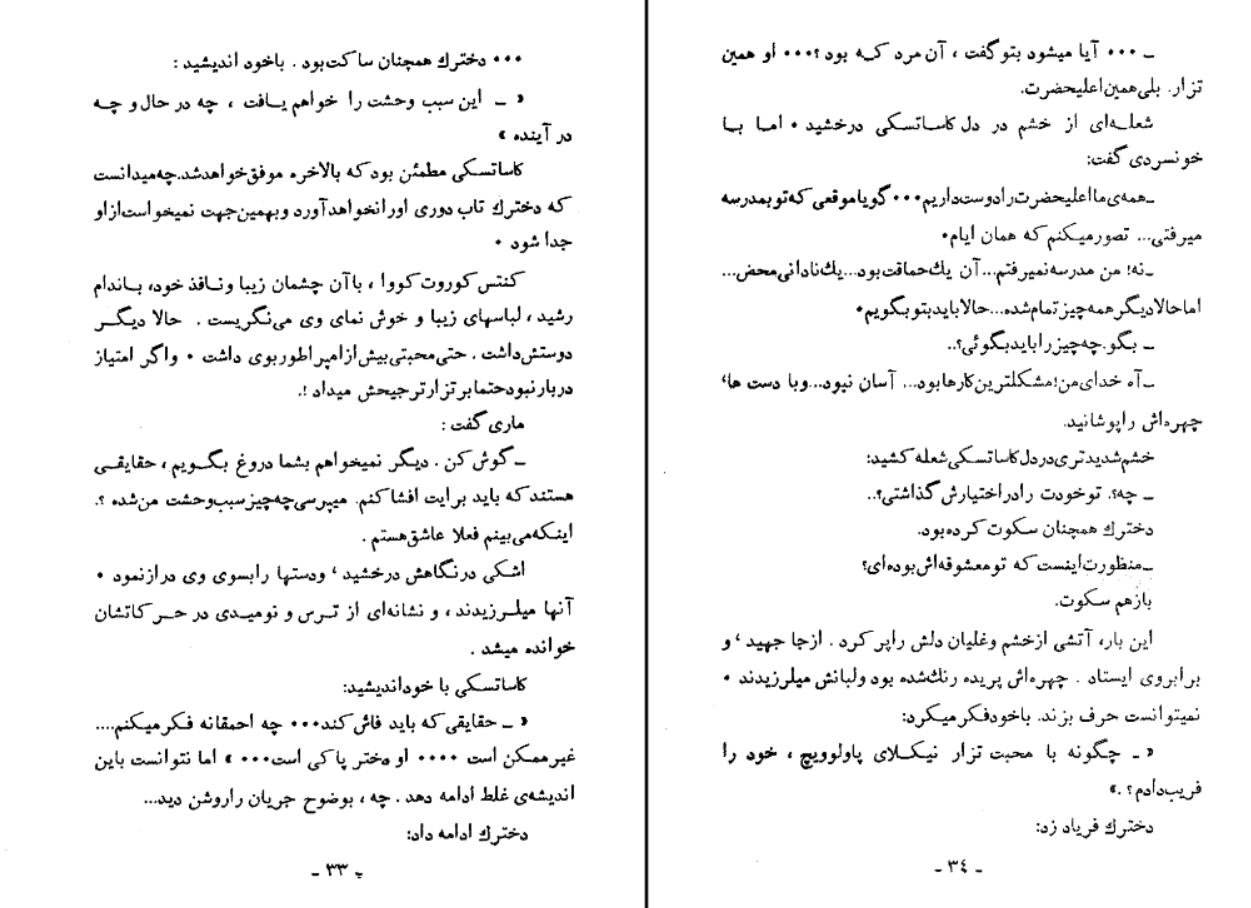 ... دخترك همچنان ساکت بود . باخود اندیشید :
« ـ این سبب وحشت را خواهم یـافت ، چه در حال و چـه
در آینده »
کاساتسکی مطمئن بود که بالاخره موفق خواهدشد.چه میدانست
که دخترك تاب دوری اورانخواهدآورد وبهمین جهت نمیخواست ازاو
جدا شود .
کنتس کوروت کووا ، باآن چشمان زیبا ونـافذ خود، بـاندام
رشید ، لباسهای زیبا و خوش نمای وی می‌نگریست . حالا دیگـر
دوستش‌داشت . حتی محبتی بیش ازامپراطوربوی داشت . واگر امتیاز
دربارنبودحتما برتزارترجیحش میداد !.
ماری گفت :
ـ گوش کن . دیگر نمیخواهم بشما دروغ بگـویم ، حقایقـی
هستند که باید برایت افشاکنم. میپرسی چه‌چیز سبب وحشت من‌شده ؟.
اینکه می‌بینم فعلا عاشق هستم .
اشکی درنگاهش درخشید ، ودستها رابسوی وی درازنمود .
آنها میلـرزیدند ، و نشانه‌ای از تـرس و نومیـدی در حـرکاتشان
خوانده میشد .
کاساتسکی با خوداندیشید:
« ـ حقایقی که باید فاش کند... چه احمقانه فـکر میـکنم....
غیرممـکن است .... او دختر پاکی است... » اما نتوانست باین
اندیشه‌ی غلط ادامه دهد . چه ، بوضوح جریان راروشن دید...
دخترك ادامه داد:
ـ ٣٣ ـ
ـ ... آیا میشود بتوگفت ، آن مرد کـه بود ؟... او همین
تزار. بلی همین اعلیحضرت.
شعلـه‌ای از خشم در دل کاسـاتسکی درخشید . امـا بـا
خونسردی گفت:
ـ همه‌ی ما اعلیحضرت رادوست‌داریم... گویا موقعی که توبمدرسه
میرفتی... تصورمیـکنم که همان ایام.
ـ نه! من مدرسه نمیرفتم... آن یك حماقت بود... یك نادانی محض...
اما حالادیگر همه چیز تمام شده... حالا باید بتو بگویم.
ـ بگو. چه چیز را باید بگوئی؟..
ـ آه خدای من! مشکلترین کارها بود... آسان نبود... وبا دست ها،
چهره‌اش راپوشانید.
خشم شدیدتری دردل کاساتسکی شعله کشید:
ـ چه؟. توخودت رادراختیارش گذاشتی؟..
دخترك همچنان سکوت کرده بود.
ـ منظورت اینست که تومعشوقه‌اش بوده‌ای؟
بازهم سکوت.
این بار، آتشی ازخشم وغلیان دلش راپر کرد . ازجا جهید ، و
برابروی ایستاد . چهره‌اش پریده رنك‌شده بود ولبانش میلرزیدند .
نمیتوانست حرف بزند. باخودفکر میکرد:
« ـ چگونه با محبت تزار نیـکـلای پاولوویچ ، خود را
فریب‌دادم ؟ .»
دخترك فریاد زد:
ـ ٣٤ ـ